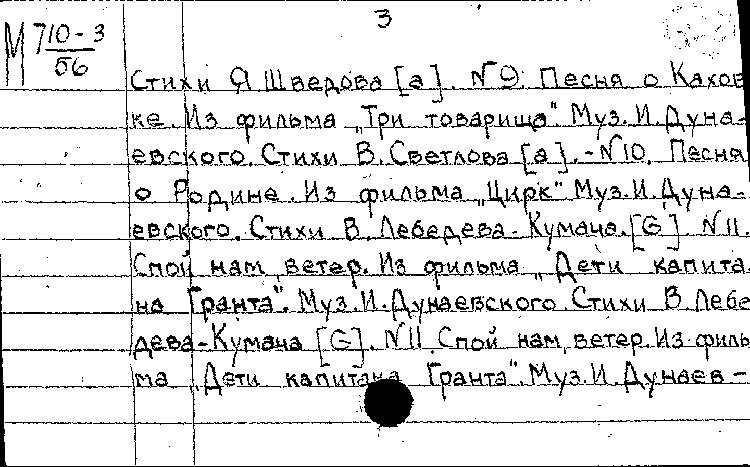 3
М 710-3
56
Стихи Я Шведова [a]. N 9. Песня о Кахов
ке. Из фильма „Три товарища" Муз. И. Дуна-
евского. Стихи В. Светлова [a]. - N 10. Песня
о Родине. Из фильма „Цирк" Муз. И. Дуна-
евского. Стихи В. Лебедева-Кумача. [G]. N 11.
Спой нам, ветер. Из фильма „Дети капита
на Гранта". Муз. И. Дунаевского. Стихи В. Лебе
дева-Кумача [G]. N 11. Спой нам, ветер. Из филь
ма „Дети капитана Гранта". Муз. И. Дунаев-